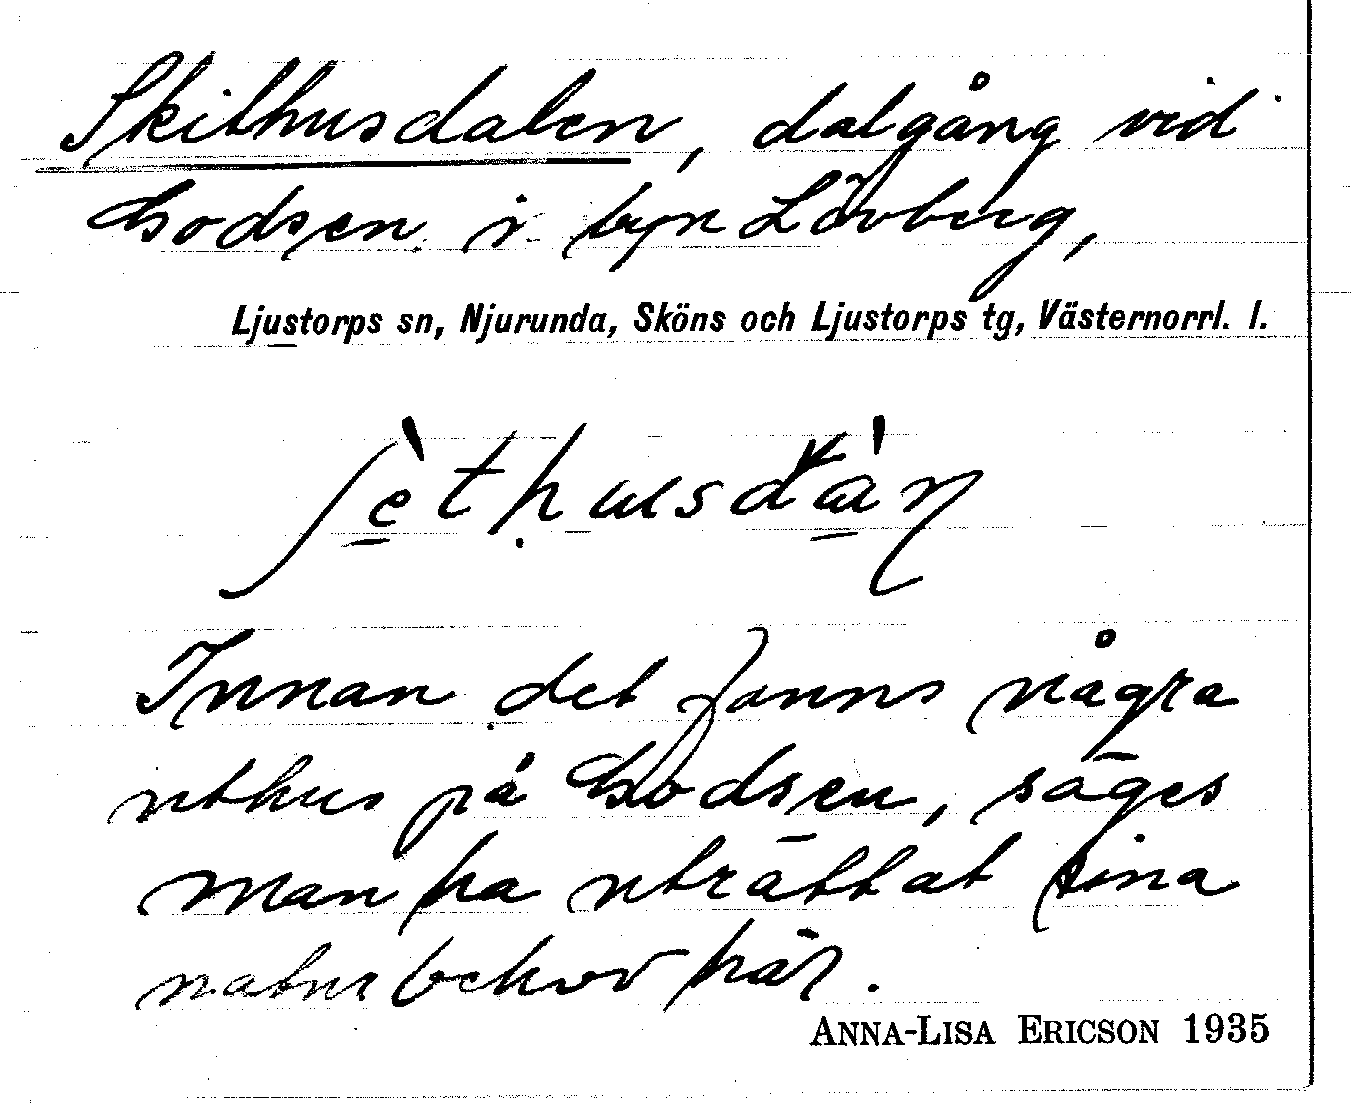 Skithusdalen, dalgång vid
Godsen i byn Lövberg,
Ljustorps sn, Njurunda, Sköns och Ljustorps tg, Västernorrl. l.
Innan det fanns några
uthus på Godsen, säges
man ha uträttat sina
naturbehov här.
ANNA-LISA ERICSON 1935